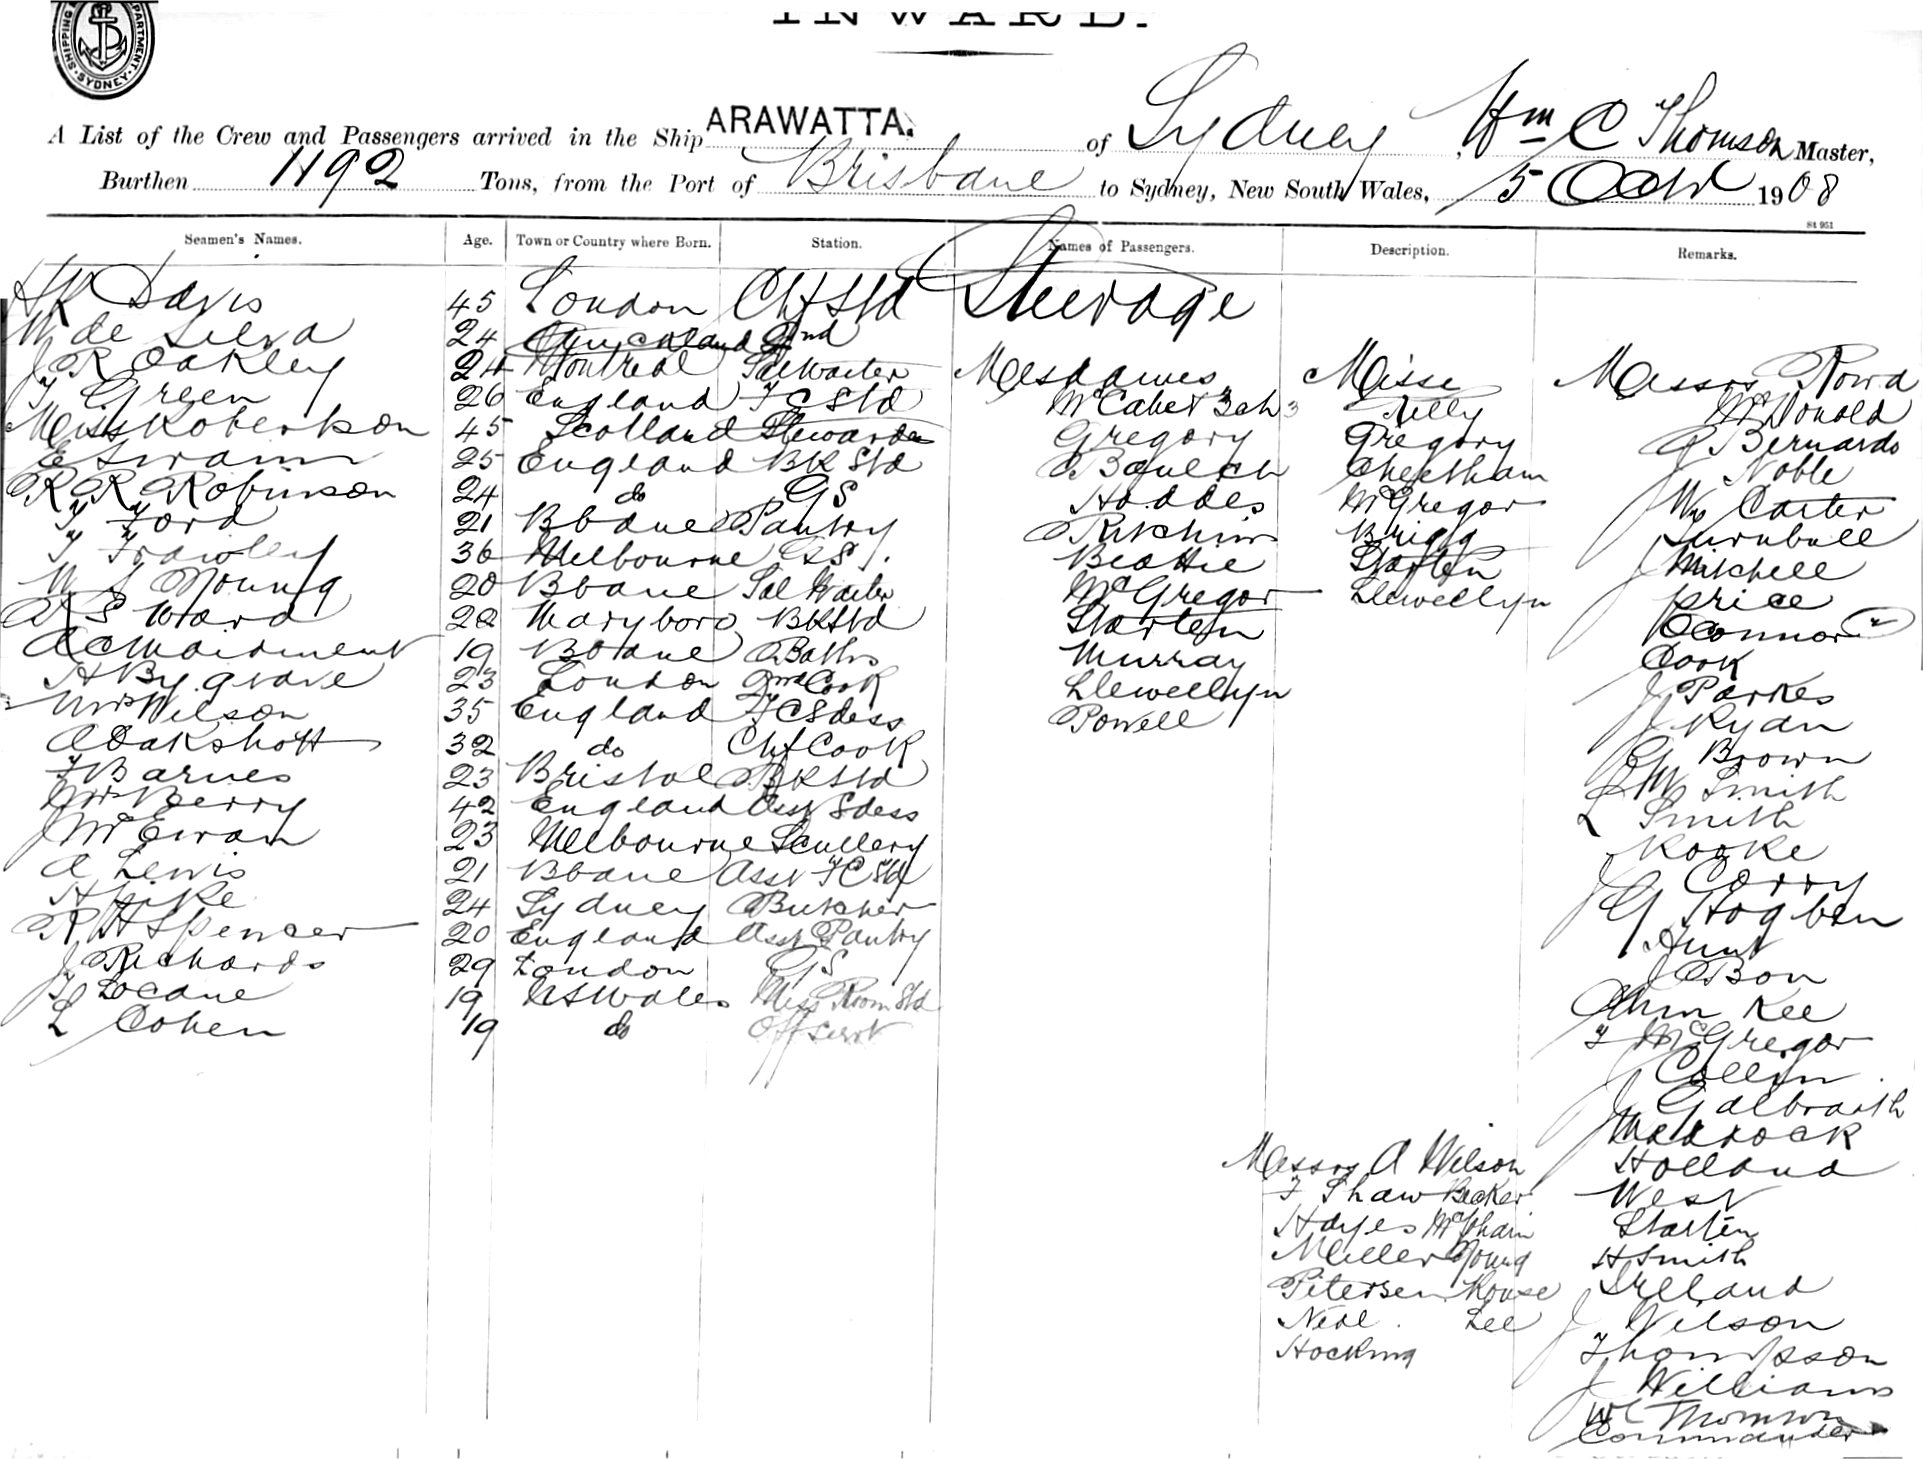 SHIPPING DEPARTMENT. SYDNEY.
INWARD.
A List of the Crew and Passengers arrived in the Ship ARAWATTA. of Sydney, Wm C Thomson Master,
Burthen 1192 Tons, from the Port of Brisbane to Sydney, New South Wales, 5 Oct 1908
St 951
Seamen's Names. Age. Town or Country where Born. Station. Names of Passengers. Description. Remarks.
HR Davis 45 London Chf Std Steerage
W de Silva 24 Auckland 2nd
J R Oakley 24 Montreal Sal Waiter Mesdames Misses Messrs Rowa
T Green 26 England F C Std McCabe & 3 ch 3 Tilly McDonald
Miss Robertson 45 Scotland Stewardess Gregory Gregory A Bernardo
E Swann 25 England BK Std Cheetham J Noble
R R Robinson 24 do GS Hoddes McGregor Wm Carter
T Ford 21 Bbane Pantry Brigg Turnbull
T Frawley 36 Melbourne GS Beattie Starten J Mitchell
W J Young 20 Bbane Sal Waiter McGregor Llewellyn Price
A S Ward 28 Maryboro BK Std Starten O'Connor
19 Bbane Baths Murray Cook
H Bygrave 23 London 2nd Cook Llewellyn J Parkes
Mrs Wilson 35 England F C Sdess Powell J Ryan
A Oakshott 32 do Chf Cook G Brown
F Barnes 23 Bristol BK Std E W Smith
Mrs Berry 42 England Asst Sdess L Smith
J McEwan 23 Melbourne Scullery Rooke
A Lewis 21 Bbane Asst F C Std J Corry
H Pike 24 Sydney Butcher G Hogben
R H Spencer 20 England Asst Pantry Hunt
J Richards 29 London GS J Bon
T Locane 19 NSWales Mess Room Std Kee
L Cohen 19 do Off Servt T McGregor
J Collin
J Galbraith
Maddock
Messrs A Wilson Holland
F Shaw Becker West
Hayes McPhain Starten
Miller Young H Smith
Petersen Rouse Ireland
Neal Lee J Wilson
Hocking Thompson
J Williams
W C Thomson
Commander